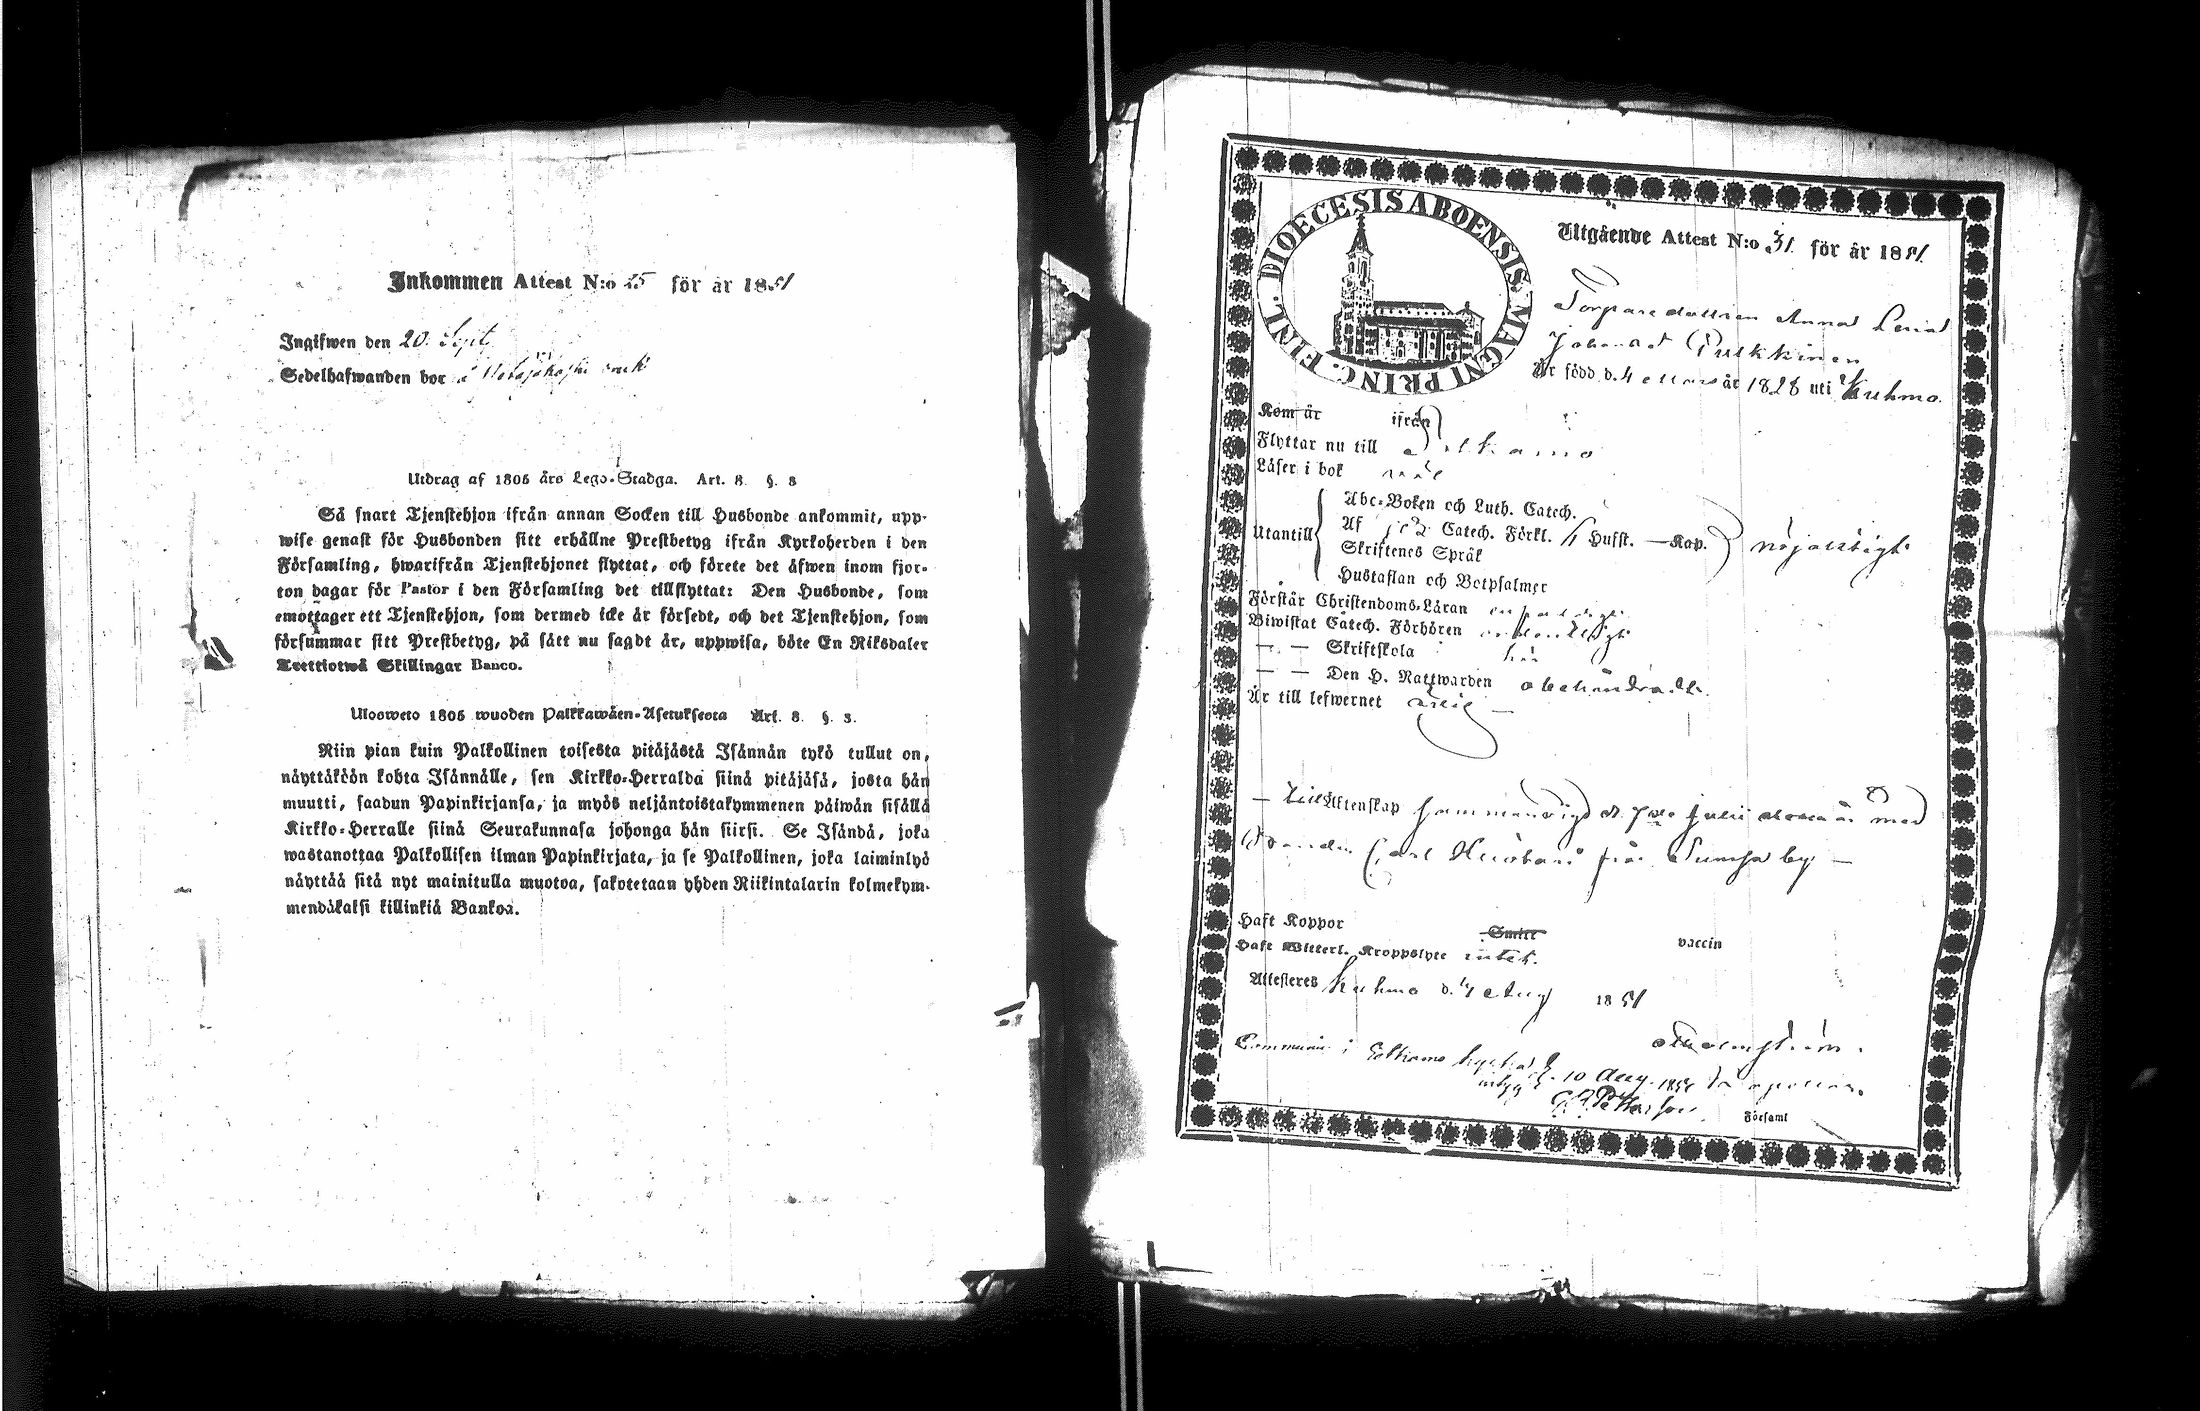 Inkommen Attest N:o 15 för år 1851
Ingifwen den 20. Sept.
Sedelhafwanden bor å
Utdrag af 1805 års Lego-Stadga. Art. 8. §. 8
Så snart Tjenstehjon ifrån annan Socken till Husbonde ankommit, upp-
wise genast för Husbonden sitt erhållne Prestbetyg ifrån Kyrkoherden i den
Församling, hwarifrån Tjenstehjonet flyttat, och förete det äfwen inom fjor-
ton dagar för Pastor i den Församling det tillflyttat: Den Husbonde, som
emottager ett Tjenstehjon, som dermed icke är försedt, och det Tjenstehjon, som
försummar sitt Prestbetyg, på sätt nu sagdt är, uppwisa, böte En Riksdaler
Trettiotwå Skillingar Banco.
Ulosweto 1805 wuoden Palkkawäen-Asetuksesta Art. 8. §. 3.
Niin pian kuin Palkollinen toisesta pitäjästä Isännän tykö tullut on,
näyttäköön kohta Isännälle, sen Kirkko-Herralda siinä pitäjäsä, josta hän
muutti, saadun Papinkirjansa, ja myös neljäntoistakymmenen päiwän sisällä
Kirkko-Herralle siinä Seurakunnasa johonga hän siirsi. Se Isändä, joka
wastanottaa Palkollisen ilman Papinkirjata, ja se Palkollinen, joka laiminlyö
näyttää sitä nyt mainitulla muotoa, sakotetaan yhden Riikintalarin kolmekym-
mendäkaksi killinkiä Bankoa.
FINL. DIOECESIS ABOENSIS. MAGNI PRINC.
Utgående Attest N:o 31 för år 1851.
Torparedottren Anna Lena
Johansd. Pulkkinen
Är född d. 4 Mars år 1828 uti Kuhmo.
Kom år ifrån
Flyttar nu till Sotkamo
Läser i bok wäl
Utantill
Abc-Boken och Luth. Catech.
Af Catech. Förkl. Husst. — Kap.
Skriftenes Språk
Hustaflan och Botpsalmer
nöjaktigt
Förstår Christendoms-Läran enfaldigt
Biwistat Catech. Förhören ordentligt
— — Skriftskola här
— — Den H. Nattwarden obehindradt.
Är till lefwernet ärlig —
— Till Äktenskap sammanvigd d. 7de Julii detta år med
Carl från by —
Haft Koppor Smitt vaccin
Haft Witterl. Kroppslyte intet.
Attesteres Kuhmo d. 4 Aug 1851
i Sotkamo
d. 10 Aug. 1851
Församl